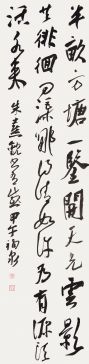 半畝方塘一鑒開天光雲影
共徘徊問渠那得清如許為有源頭
活水來 朱熹觀書有感 甲午